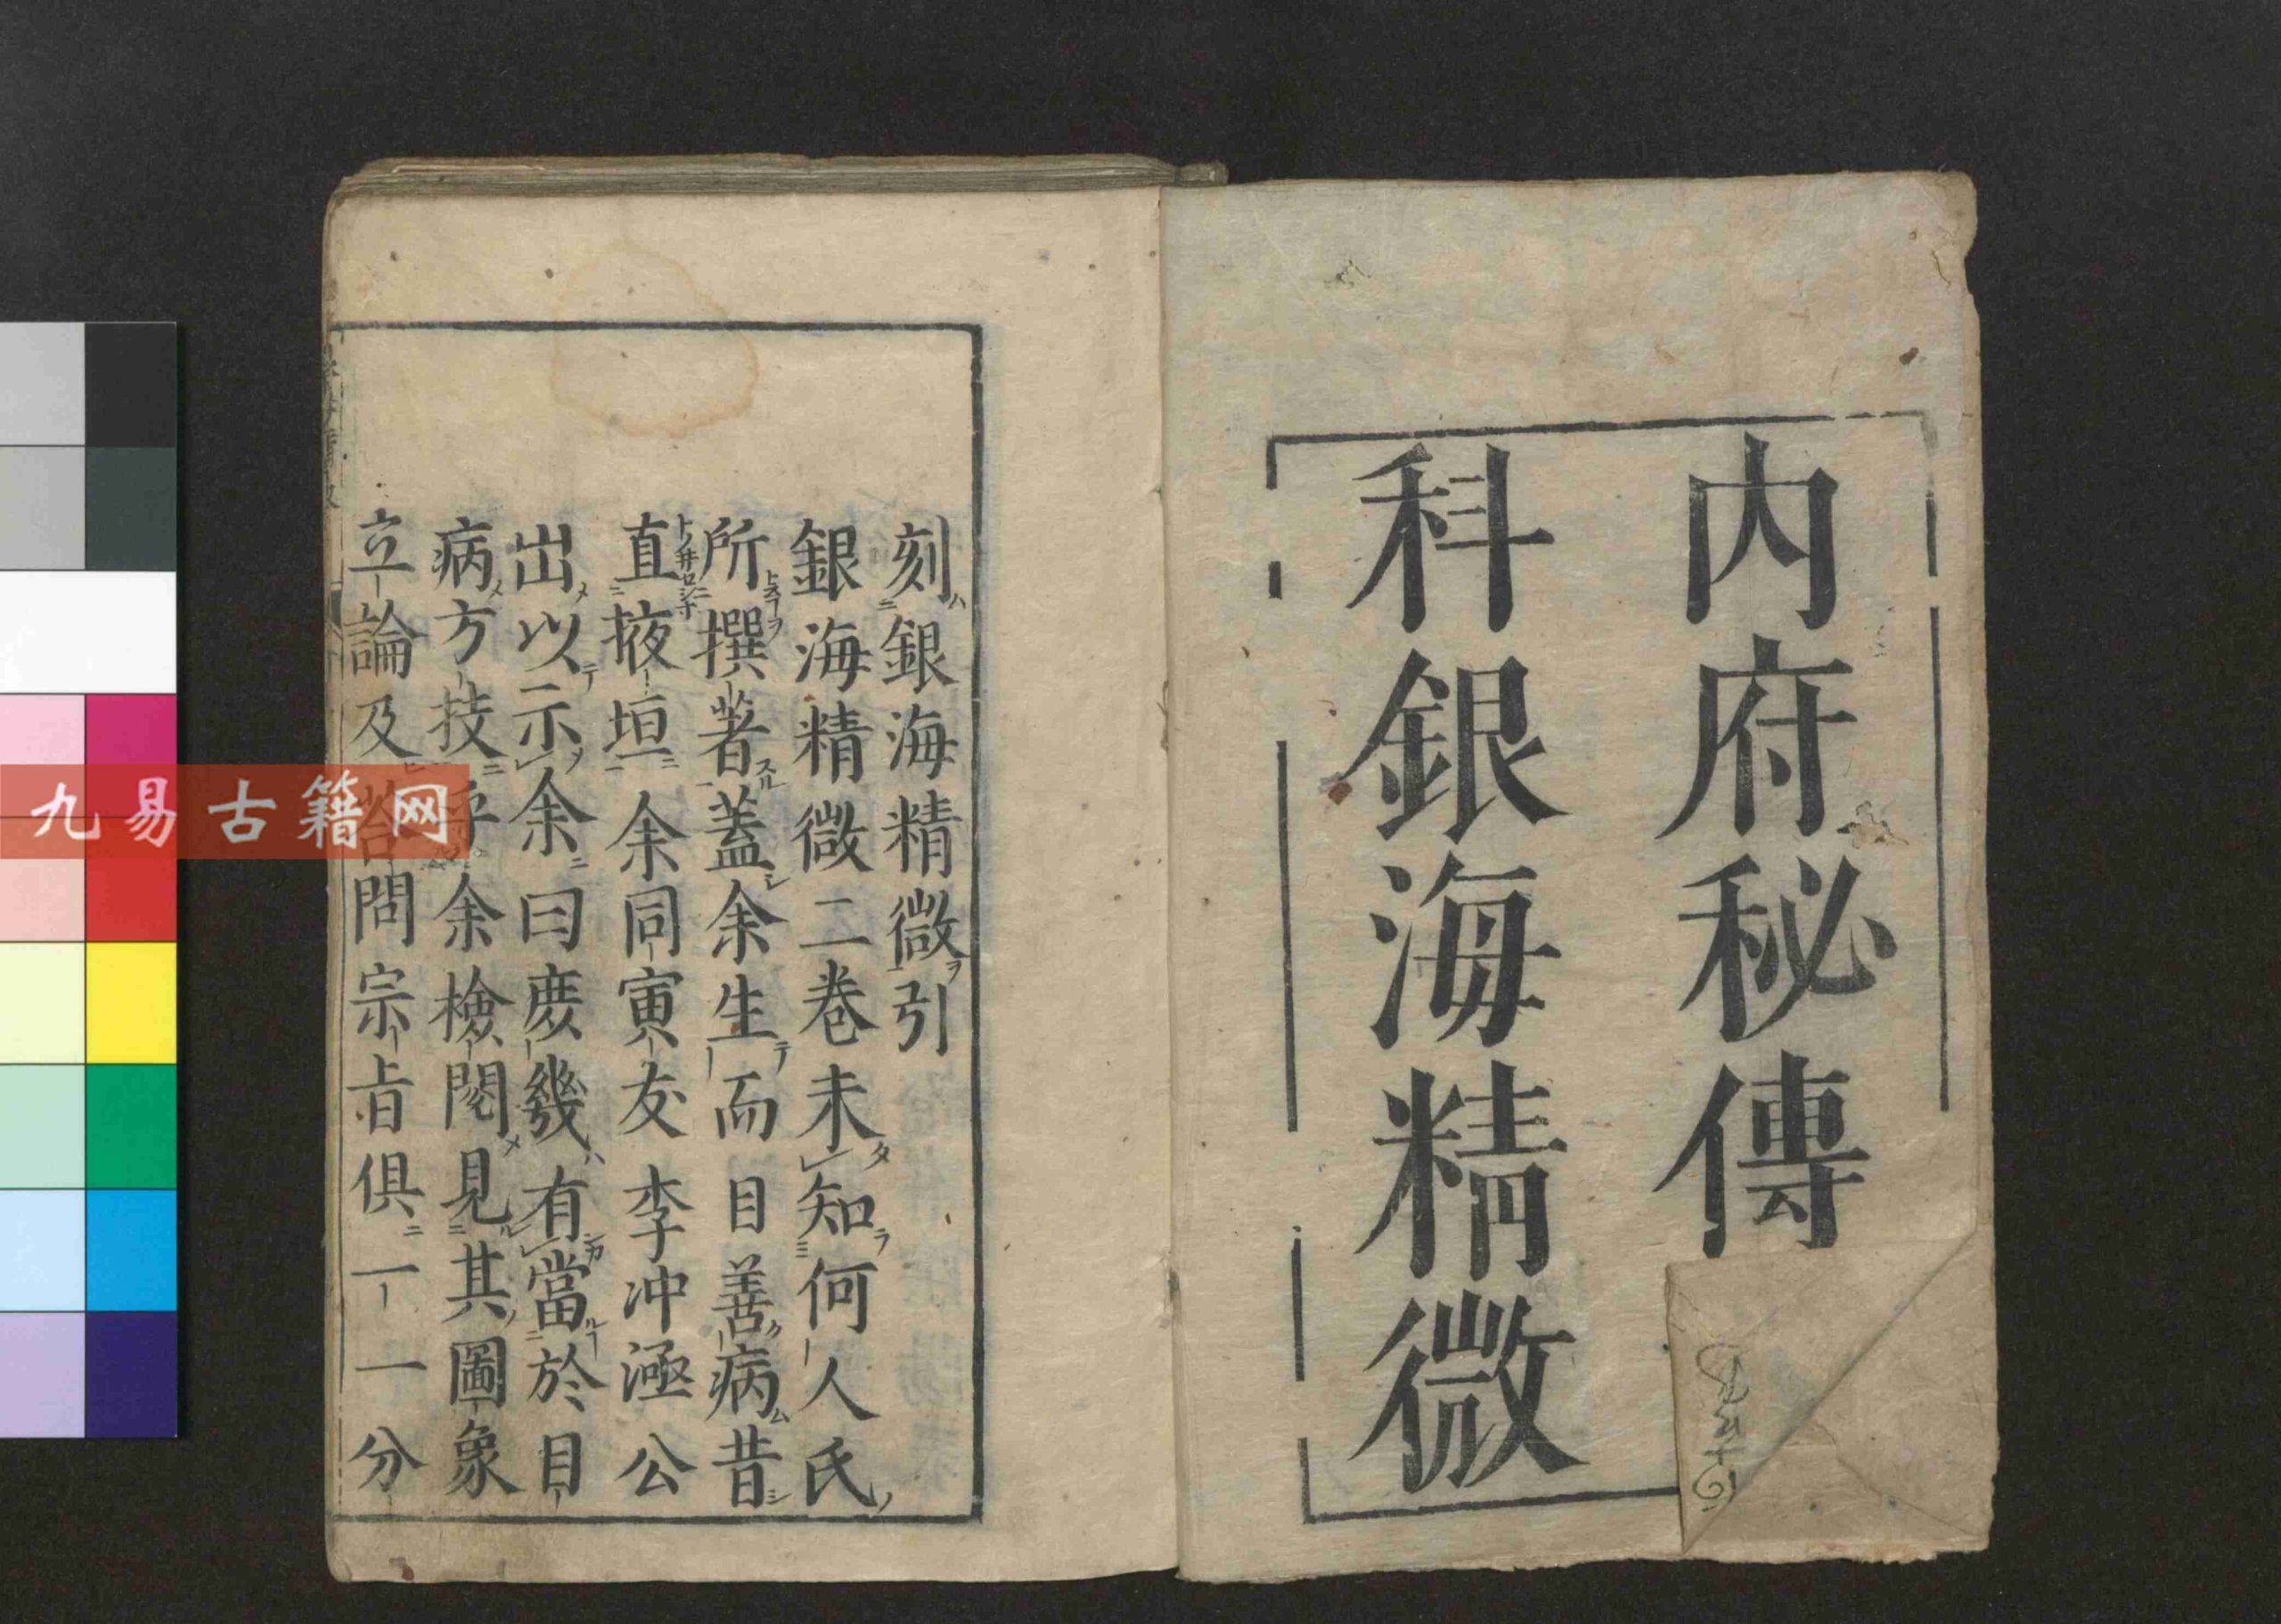 内府秘傳
科銀海精微
刻銀海精微引
銀海精微二巻未知何人氏
所撰著蓋余生而目善病昔
直掖垣余同寅友李冲涵公
出以示余曰庻幾有當於目
病方技乎余檢閱見其圖象
立論及答問宗㫖俱一一分
九易古籍网